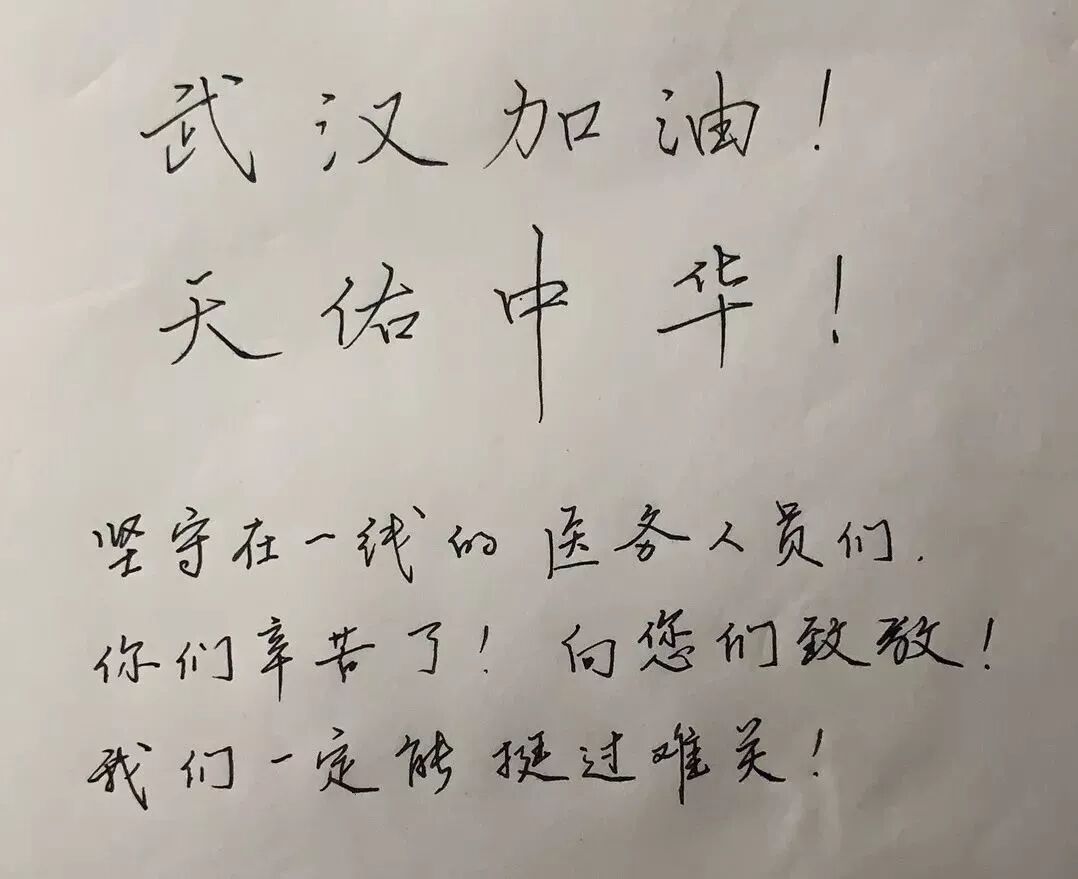 武汉加油！
天佑中华！
坚守在一线的医务人员们.
你们辛苦了！向您们致敬！
我们一定能挺过难关！